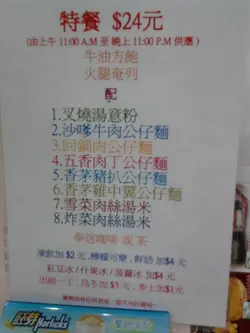 特餐 $24元
(由上午 11:00 A.M 至 晚上 11:00 P.M 供應)
牛油方飽
火腿奄列
配
1.叉燒湯意粉
2.沙嗲牛肉公仔麵
3.回鍋肉公仔麵
4.五香肉丁公仔麵
5.香茅豬扒公仔麵
6.香茅雞中翼公仔麵
7.雪菜肉絲湯米
8.炸菜肉絲湯米
奉送咖啡 或 茶
凍飲加 $2元,檸檬可樂, 鮮奶 加$4元
紅豆冰/什果冰/菠蘿冰 加$4元
出前一丁、烏冬加 $3元、多士加$1元
好立克 Horlicks